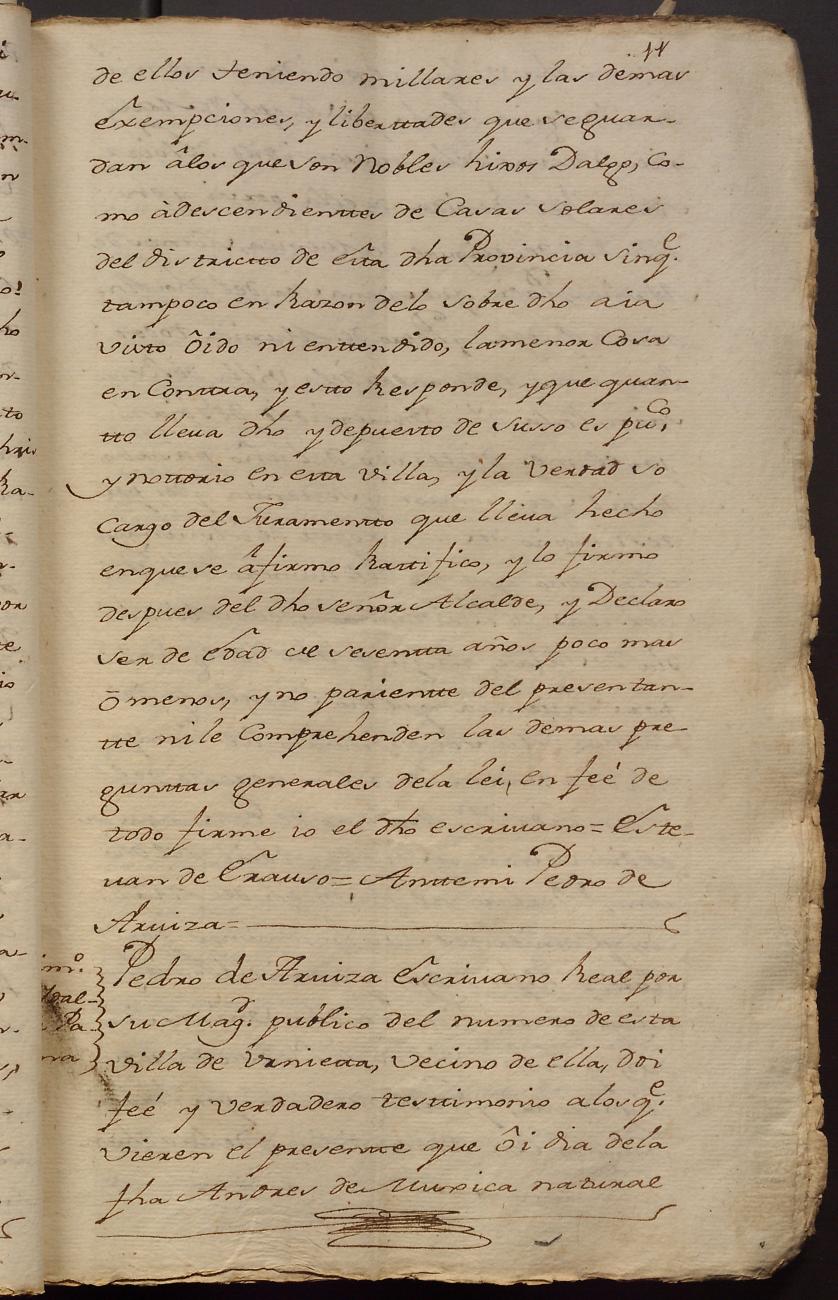 de ellos teniendo millares y las demas
exempciones, y liberttades que se guar-
dan âlos que son Nobles hixos Dalgo, co-
mo àdescendienttes de Casas solares
del districtto de esta dha Provincia sinq.e
tampoco en Razon delo sobre dho aia
visto ôido ni enttendido, lamenor Cosa
en Conttra, y estto Responde, yque quan-
tto lleua dho y depuesto de susso es pu.co
y nottorio en esta villa, y la verdad so
cargo del Juramentto que lleua hecho
enquese âfirmo Rattifico, y lo firmo
despues del dho señor Alcalde, y Declaro
ser de edad de sesentta años poco mas
ō menos, y no parientte del presentan-
tte nile Comprehenden las demas pre-
gunttas generales dela lei, en feé de
todo firme io el dho escriuano = Este-
uan de Erauso = Anttemi Pedro de
Aruiza =
Pedro de Aruiza Escriuano Real por
su Mag.d público del numero de esta
villa de Vrnietta, vecino de ella, doi
feé y verdadero testtimonio alosq.e
vieren el presentte que ôi dia dela
fha Andres de Muxica natural